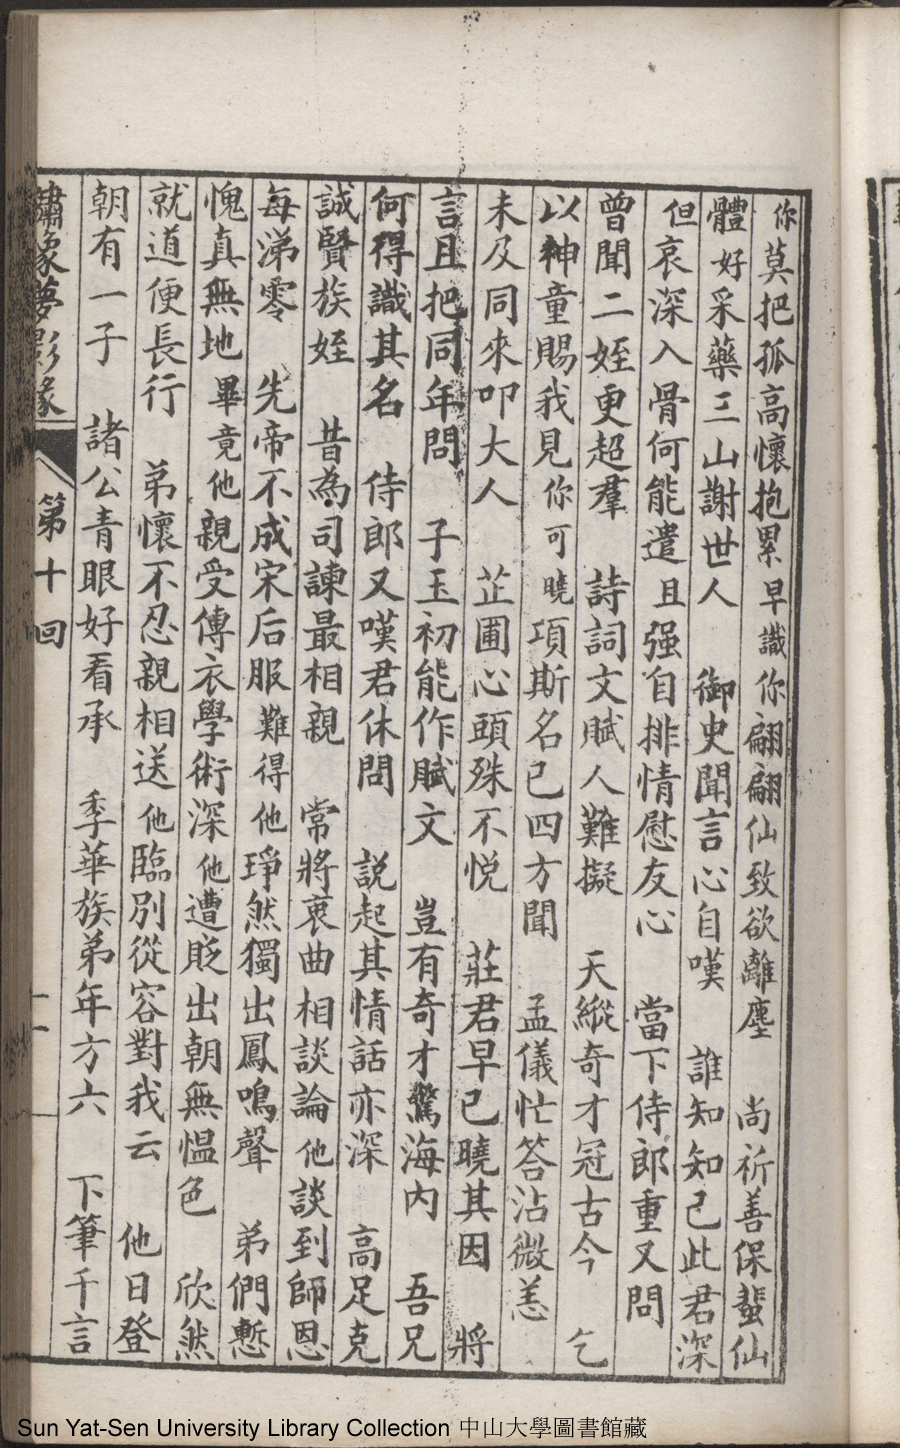 你莫把孤高懷抱累早識你翩翩仙致欲離塵　尚祈善保蜚仙
體好采藥三山謝世人　御史聞言心自嘆　誰知知己此君深
但哀深入骨何能遣且强自排情慰友心　當下侍郎重又問
曾聞二姪更超羣　詩詞文賦人難擬　天縱奇才冠古今　乞
以神童賜我見你可曉項斯名已四方聞　孟儀忙答沾微恙
未及同來叩大人　芷圃心頭殊不悦　莊君早已曉其因　將
言且把同年問　子玉初能作賦文　豈有奇才驚海内　吾兄
何得識其名　侍郎又嘆君休問　説起其情話亦深　高足克
誠賢族姪　昔為司諫最相親　常將衷曲相談論他談到師恩
每涕零　先帝不成宋后服難得他琤然獨出鳳鳴聲　弟們慙
愧真無地畢竟他親受傳衣學術深他遭貶出朝無愠色　欣然
就道便長行　弟懷不忍親相送他臨別從容對我云　他日登
朝有一子　諸公青眼好看承　季華族弟年方六　下筆千言
繡像夢影緣　第十回　十一
Sun Yat-Sen University Library Collection 中山大學圖書館藏